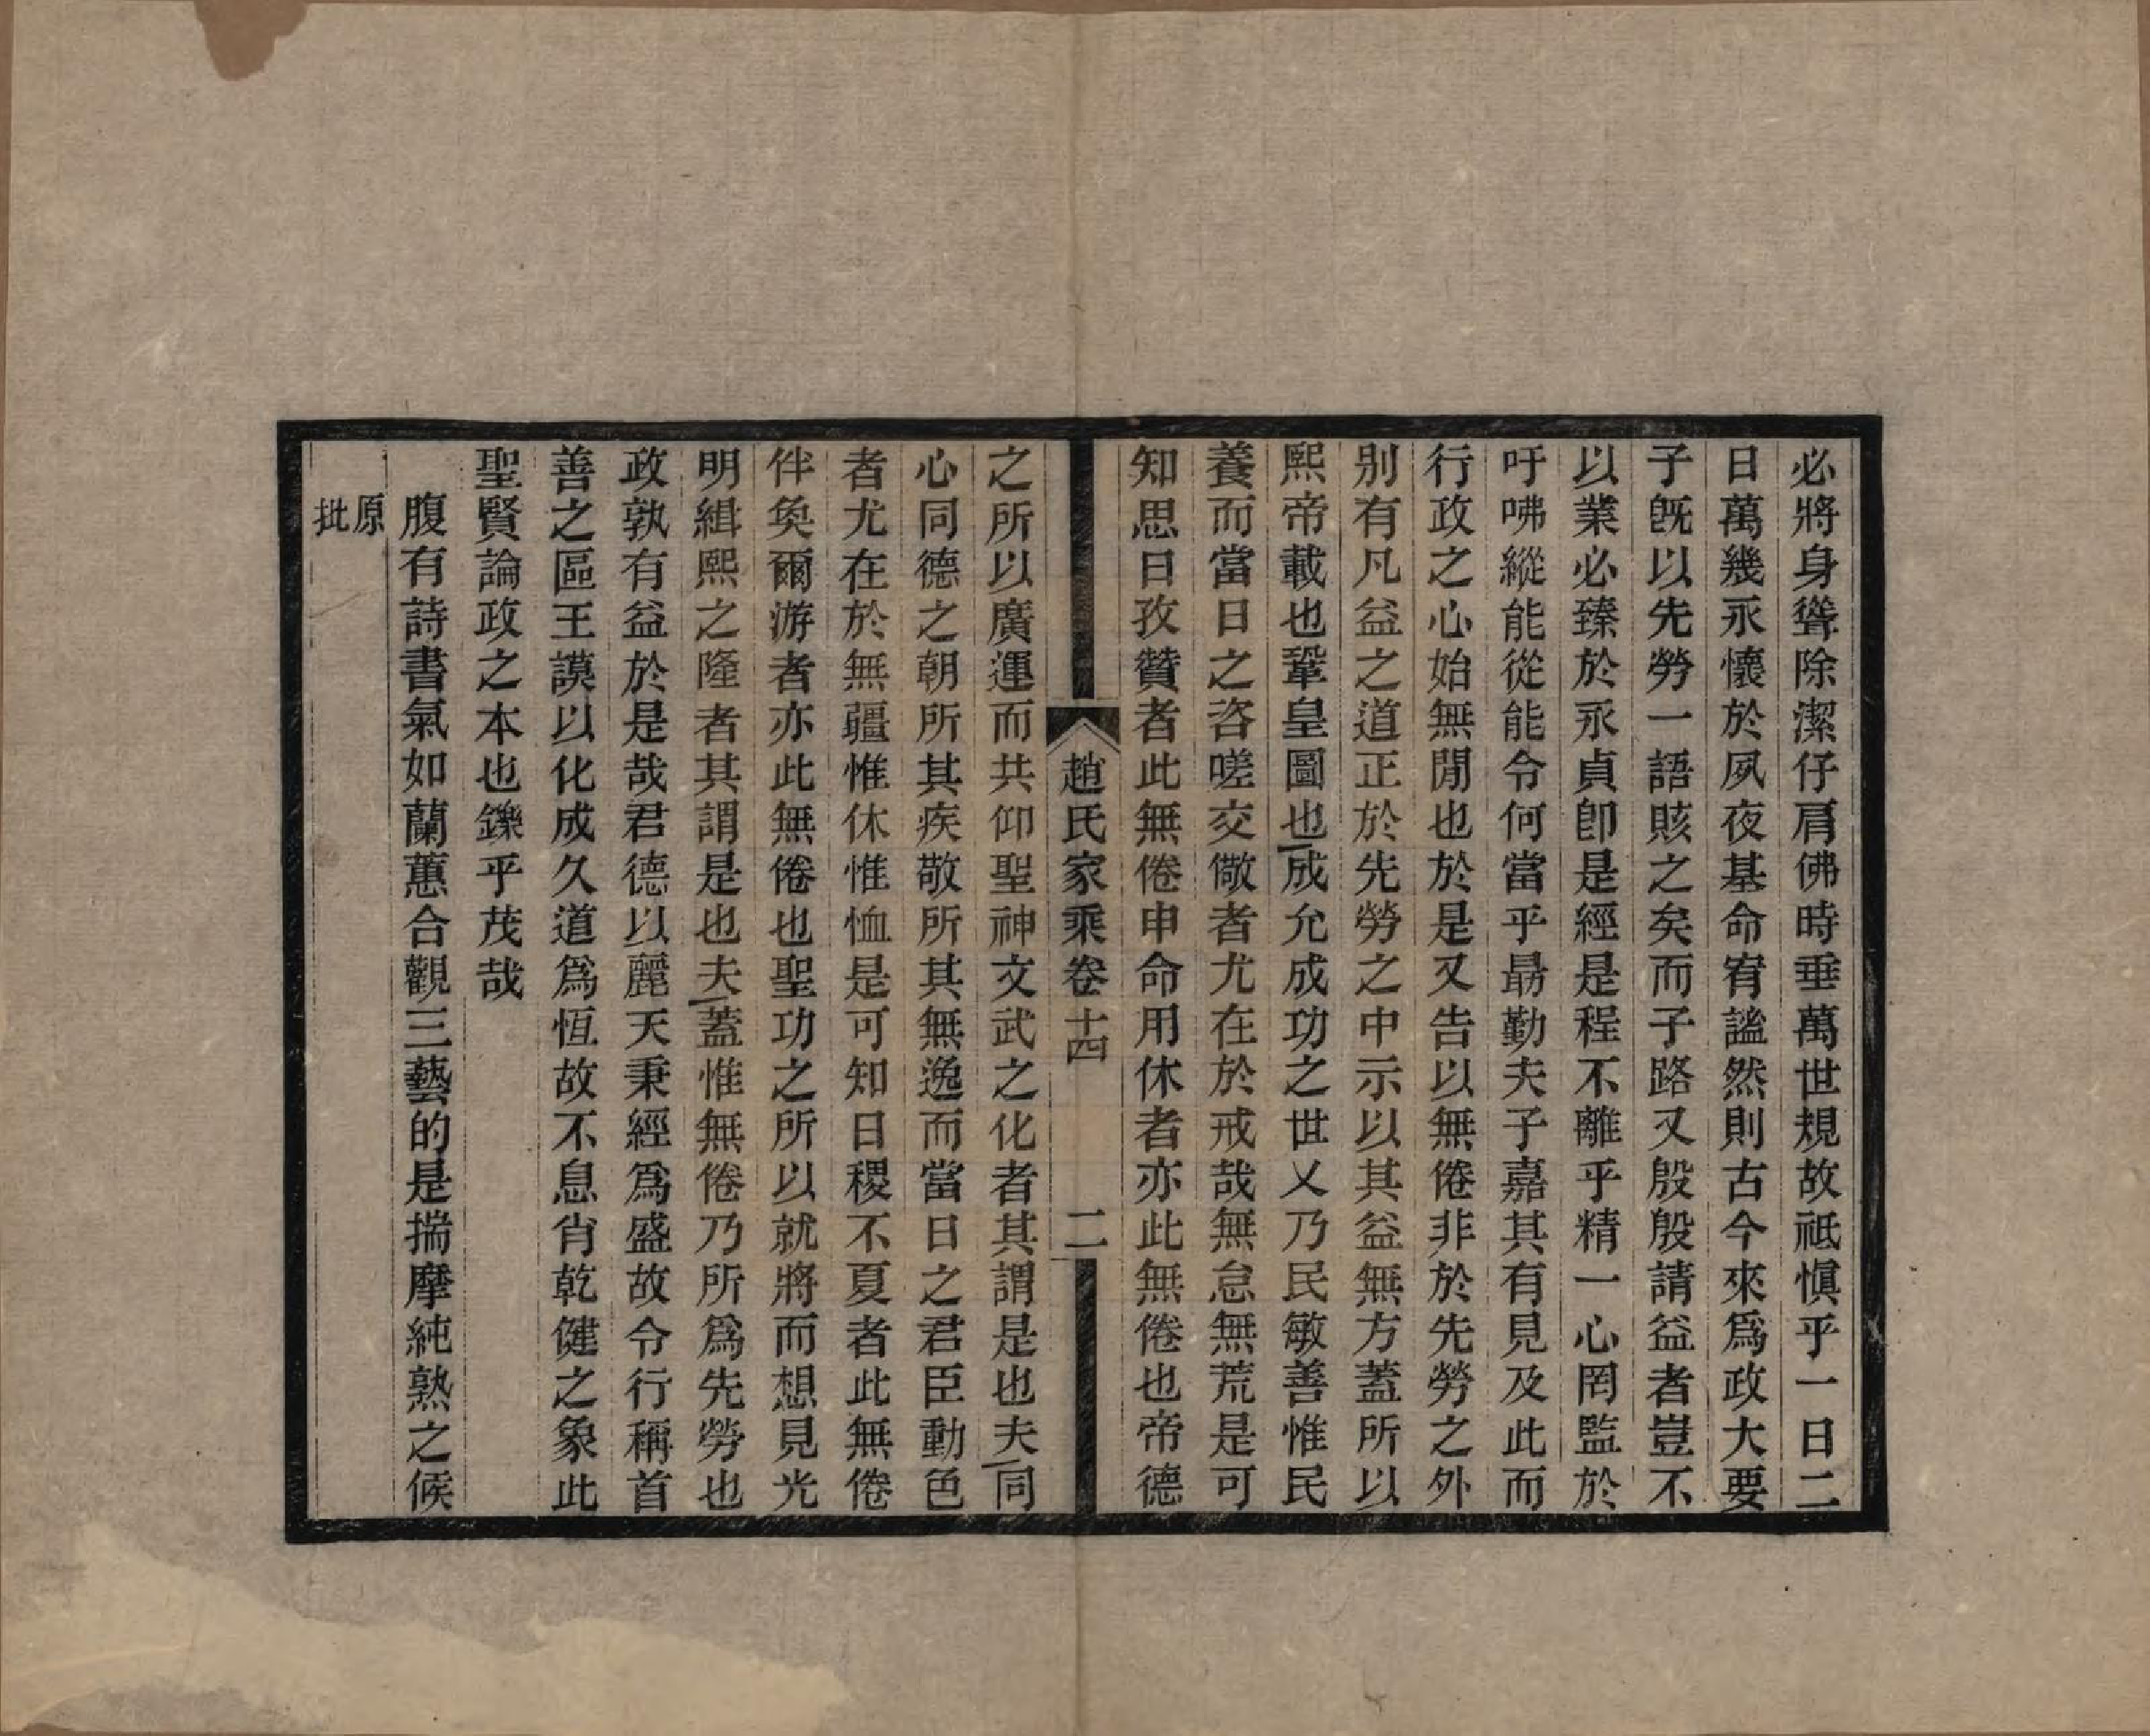 必將身聳除潔仔肩佛時垂萬世規故祗愼乎一日二
日萬幾永懷於夙夜基命宥謐然則古今來爲政大要
子旣以先勞一語賅之矣而子路又殷殷請益者豈不
以業必臻於永貞卽是經是程不離乎精一心罔監於
吁咈縱能從能令何當乎勗勤夫子嘉其有見及此而
行政之心始無閒也於是又告以無倦非於先勞之外
別有凡益之道正於先勞之中示以其益無方蓋所以
熙帝載也鞏皇圖也成允成功之世乂乃民敏善惟民
養而當日之咨嗟交儆者尤在於戒哉無怠無荒是可
知思日孜贊者此無倦申命用休者亦此無倦也帝德
趙氏家乘卷十四 二
之所以廣運而共仰聖神文武之化者其謂是也夫同
心同德之朝所其疾敬所其無逸而當日之君臣動色
者尤在於無疆惟休惟恤是可知日稷不夏者此無倦
伴奐爾游者亦此無倦也聖功之所以就將而想見光
明緝熙之隆者其謂是也夫蓋惟無倦乃所爲先勞也
政孰有益於是哉君德以麗天秉經爲盛故令行稱首
善之區王謨以化成久道爲恆故不息肖乾健之象此
聖賢論政之本也鑠乎茂哉
腹有詩書氣如蘭蕙合觀三藝的是揣摩純熟之候
原批